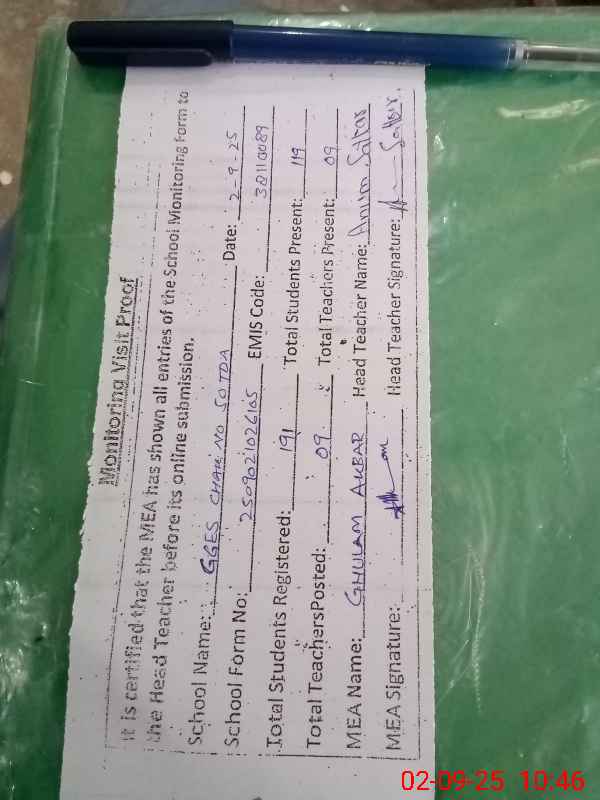 Monitoring Visit Proof
It is certified that the MEA has shown all entries of the School Monitoring Form to
the Head Teacher before its online submission.
School Name: GGES CHAK NO 50TDA Date: 2-9-25
School Form No: 2509021026105 EMIS Code: 32110089
Total Students Registered: 191 Total Students Present: 119
Total TeachersPosted: 09 Total Teachers Present: 09
MEA Name: GHULAM AKBAR Head Teacher Name: Anum Sattar
MEA Signature: Head Teacher Signature: Sattar
02-09-25 10:46